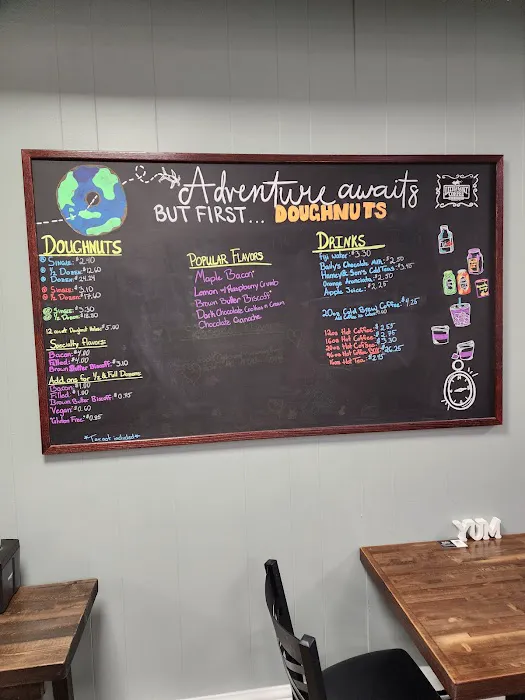 Adventure awaits
BUT FIRST... DOUGHNUTS
DOUGHNUTS
Single: $2.40
1/2 Dozen: $12.60
Dozen: $24.24
Single: $3.10
1/2 Dozen: $17.60
Single: $3.30
1/2 Dozen: $18.80
12 count Doughnut Holes: $5.00
Specialty Flavors:
Bacon: $4.00
Filled: $4.00
Brown Butter Biscoff: $3.10
Add ons for 1/2 & Full Dozens:
Bacon: $1.80
Filled: $1.80
Brown Butter Biscoff: $0.75
Vegan: $0.60
Gluten Free: $0.85
*Tax not included*
POPULAR FLAVORS
Maple Bacon
Lemon w/ Raspberry Crumb
Brown Butter Biscoff
Dark Chocolate Cookies n Cream
Chocolate Ganache
DRINKS
Fiji Water: $3.30
Baily's Chocolate Milk: $2.50
Harney & Son's Cold Teas: $3.45
Orange Aranciata: $2.50
Apple Juice: $2.25
20oz Cold Brew Coffee: $4.25
12oz Hot Coffee: $2.55
16oz Hot Coffee: $2.75
20oz Hot Coffee: $3.30
96oz Hot Coffee Box: $26.25
16oz Hot Tea: $2.15
YUM